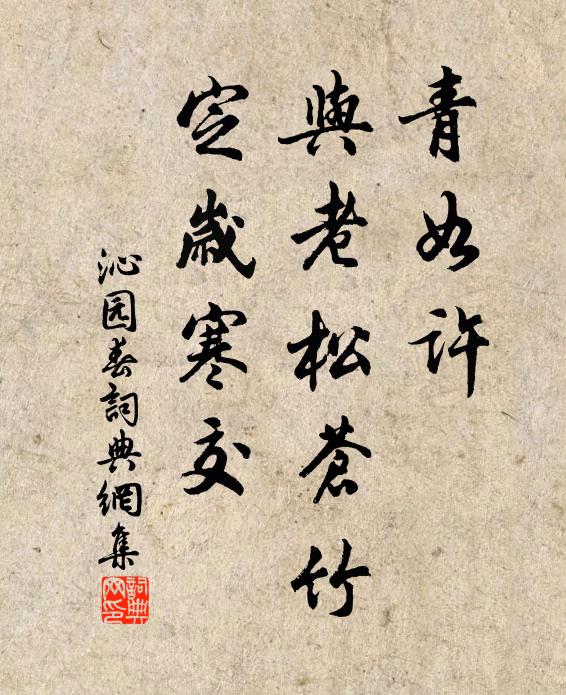 青如許
與老松蒼竹
定歲寒交
沁园春詞典網集
詞典网印